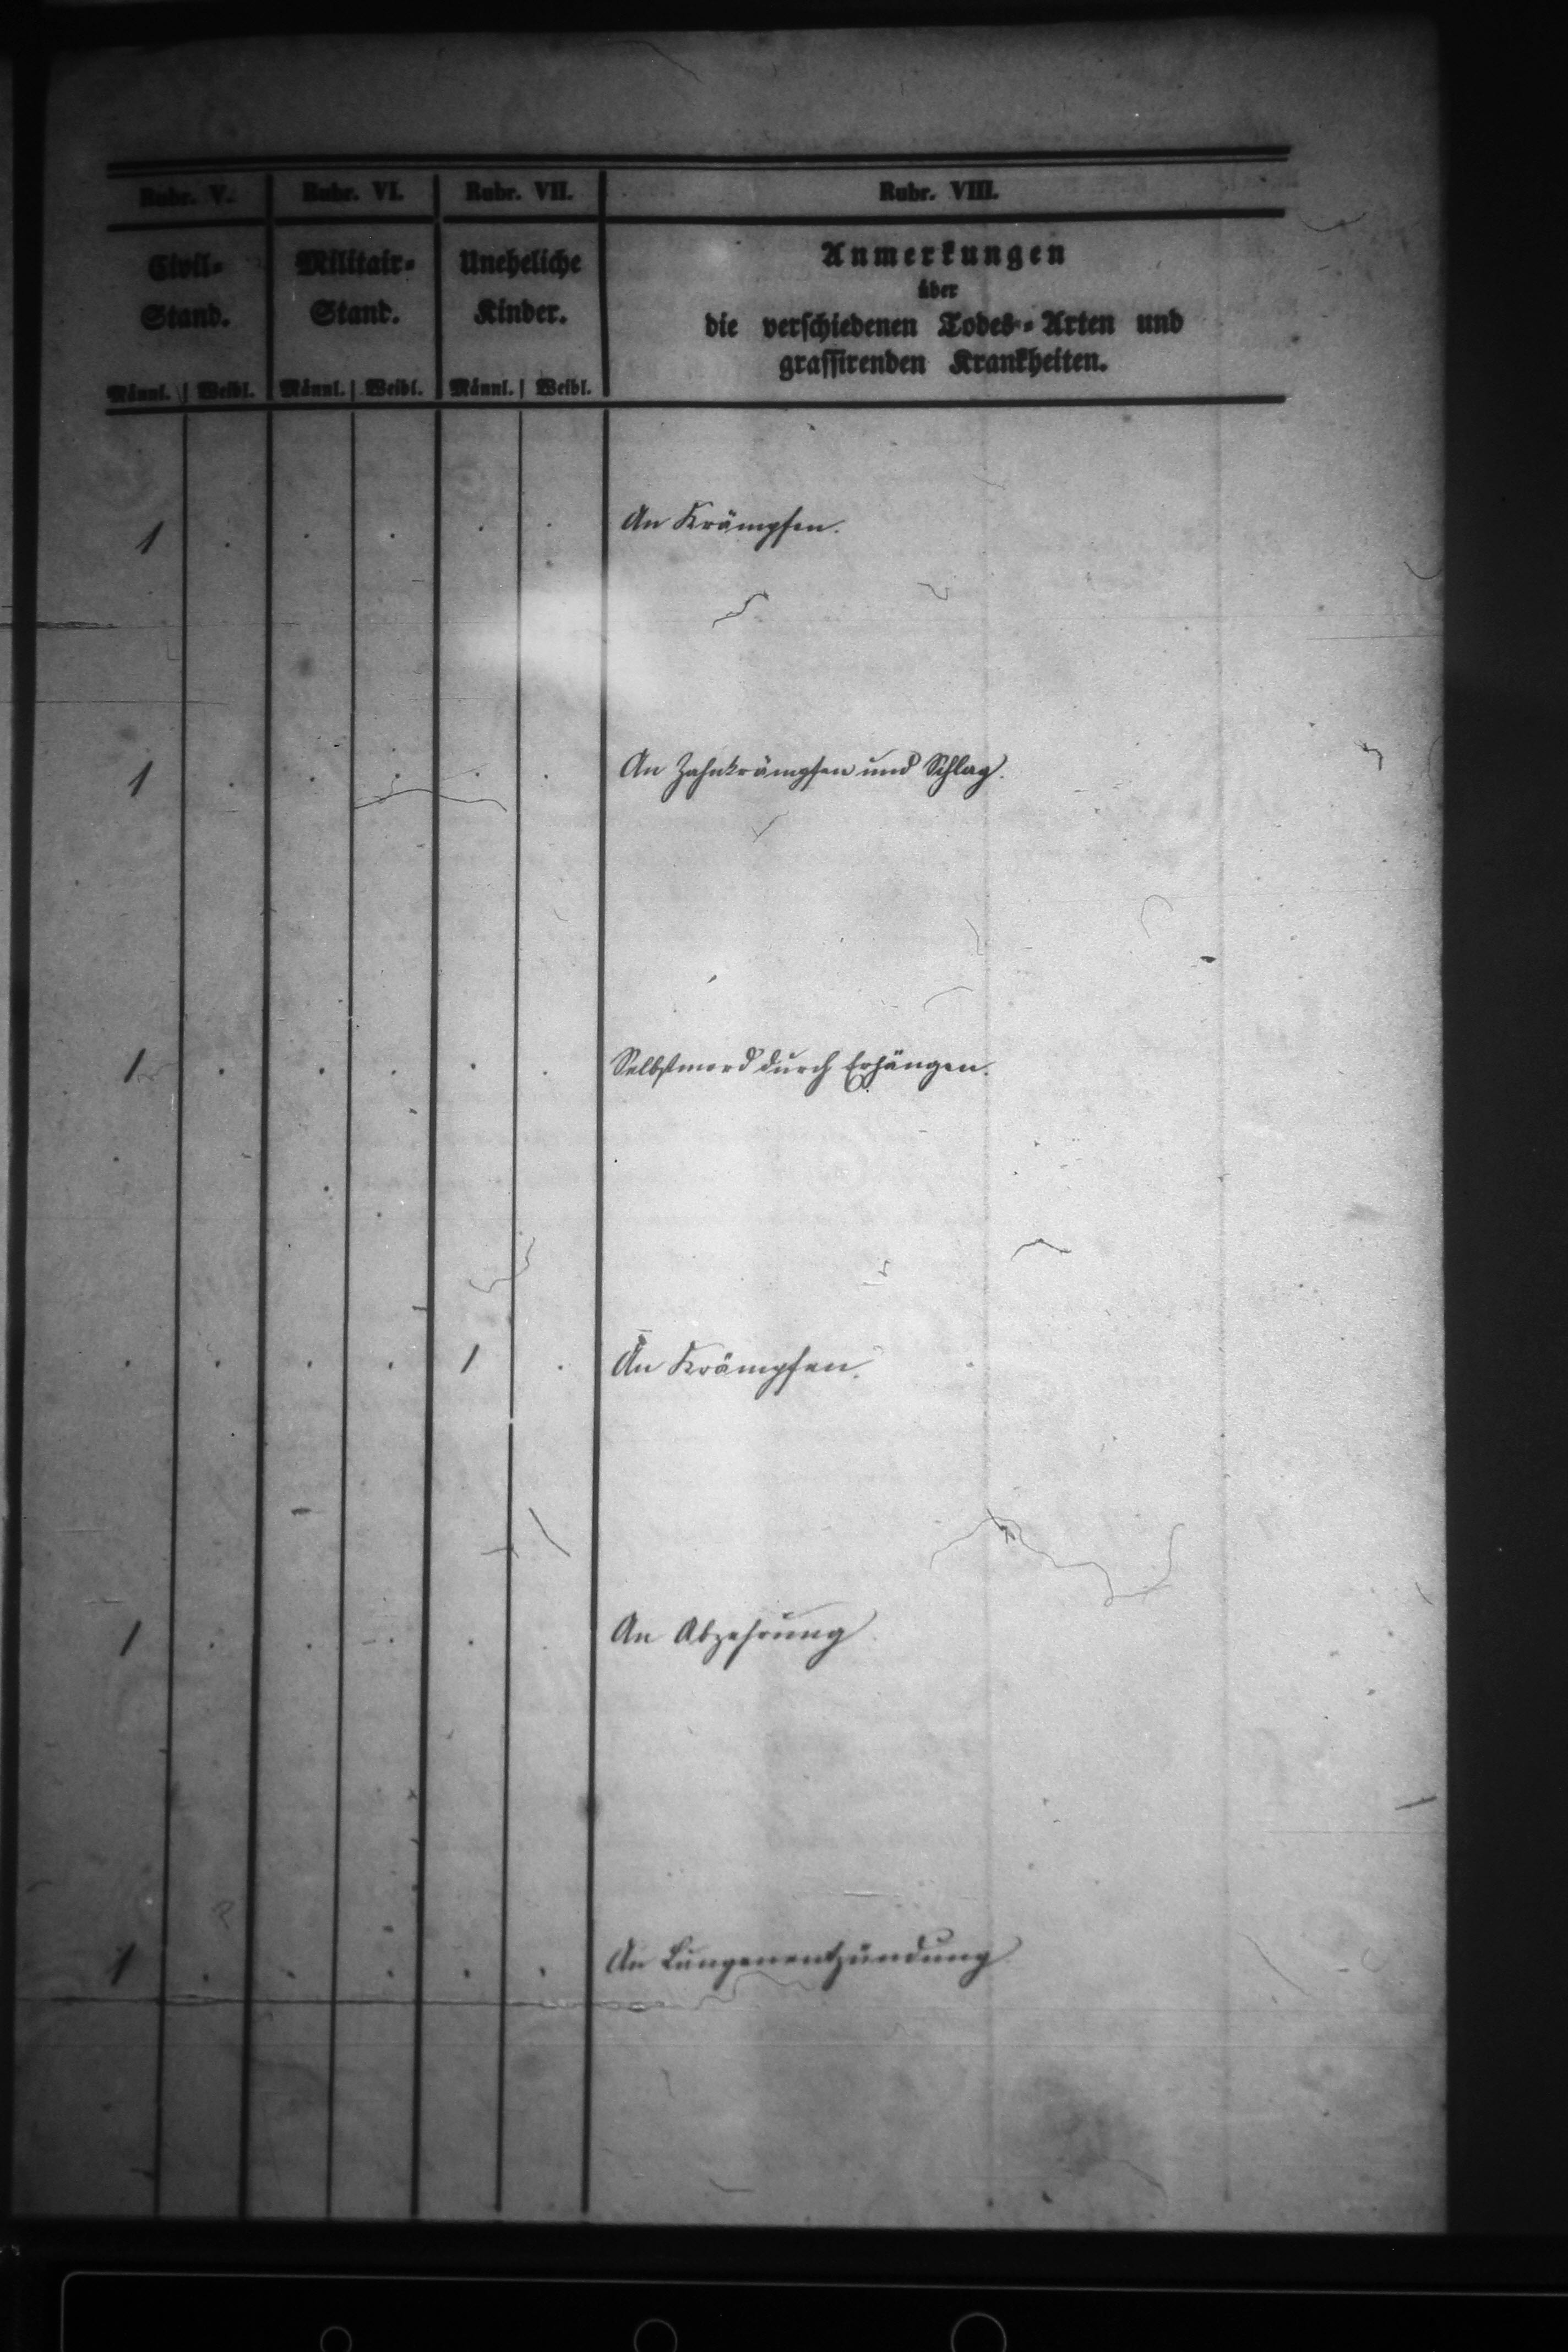 Rubr. V. Rubr. VI. Rubr. VII. Rubr. VIII.
Civil- Militair- Uneheliche Anmerkungen
Stand. Stand. Kinder. über
die verschiedenen Todes-Arten und
grassirenden Krankheiten.
Männl. Weibl. Männl. Weibl. Männl. Weibl.
1 . . . . . An Krämpfen.
1 . . . . . An Zahnkrämpfen und Schlag.
1 . . . . . Selbstmord durch Erhängen.
. . . . 1 . An Krämpfen.
1 . . . . . An Abzehrung
1 . . . . . An Lungenentzündung